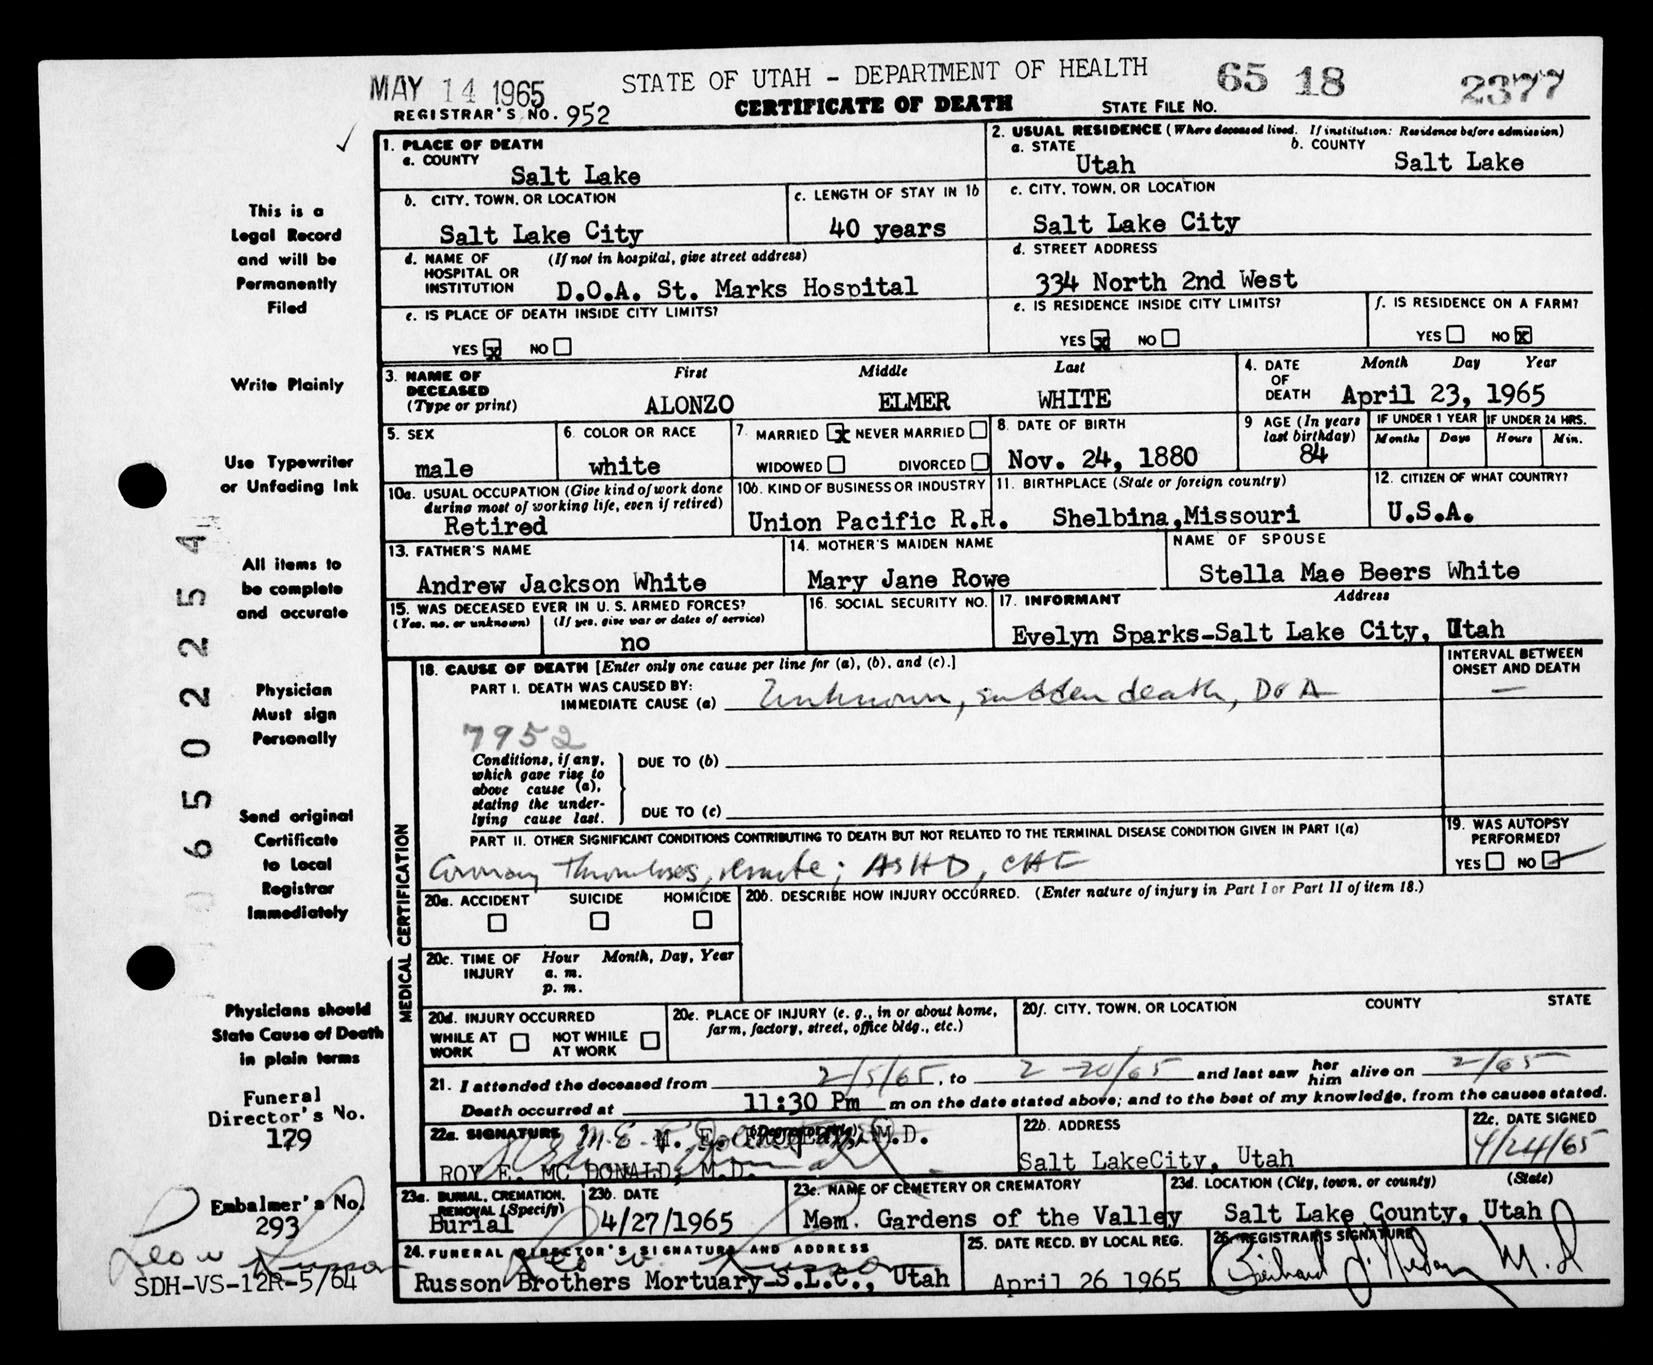 MAY 14 1965
STATE OF UTAH - DEPARTMENT OF HEALTH
65 18 2377
REGISTRAR'S NO. 952
CERTIFICATE OF DEATH
STATE FILE NO.
This is a
Legal Record
and will be
Permanently
Filed
Write Plainly
Use Typewriter
or Unfading Ink
All items to
be complete
and accurate
Physician
Must sign
Personally
Send original
Certificate
to Local
Registrar
Immediately
Physicians should
State Cause of Death
in plain terms
Funeral
Director's No.
129
Embalmer's No.
293
Leo W. Russon
SDH-VS-12R-5/64
0650 2254
1. PLACE OF DEATH
a. COUNTY
Salt Lake
2. USUAL RESIDENCE (Where deceased lived. If institution: Residence before admission)
a. STATE
Utah
b. COUNTY
Salt Lake
b. CITY, TOWN, OR LOCATION
Salt Lake City
c. LENGTH OF STAY IN 1b
40 years
c. CITY, TOWN, OR LOCATION
Salt Lake City
d. NAME OF HOSPITAL OR INSTITUTION (If not in hospital, give street address)
D.O.A. St. Marks Hospital
d. STREET ADDRESS
334 North 2nd West
e. IS PLACE OF DEATH INSIDE CITY LIMITS?
YES x NO
e. IS RESIDENCE INSIDE CITY LIMITS?
YES x NO
f. IS RESIDENCE ON A FARM?
YES NO x
3. NAME OF DECEASED (Type or print)
First Middle Last
ALONZO ELMER WHITE
4. DATE OF DEATH
Month Day Year
April 23, 1965
5. SEX
male
6. COLOR OR RACE
white
7. MARRIED x NEVER MARRIED
WIDOWED DIVORCED
8. DATE OF BIRTH
Nov. 24, 1880
9 AGE (In years last birthday)
84
IF UNDER 1 YEAR IF UNDER 24 HRS.
Months Days Hours Min.
10a. USUAL OCCUPATION (Give kind of work done during most of working life, even if retired)
Retired
10b. KIND OF BUSINESS OR INDUSTRY
Union Pacific R.R.
11. BIRTHPLACE (State or foreign country)
Shelbina,Missouri
12. CITIZEN OF WHAT COUNTRY?
U.S.A.
13. FATHER'S NAME
Andrew Jackson White
14. MOTHER'S MAIDEN NAME
Mary Jane Rowe
NAME OF SPOUSE
Stella Mae Beers White
15. WAS DECEASED EVER IN U. S. ARMED FORCES?
(Yes, no, or unknown) (If yes, give war or dates of service)
no
16. SOCIAL SECURITY NO.
17. INFORMANT Address
Evelyn Sparks-Salt Lake City, Utah
MEDICAL CERTIFICATION
18. CAUSE OF DEATH [Enter only one cause per line for (a), (b), and (c).]
INTERVAL BETWEEN ONSET AND DEATH
PART I. DEATH WAS CAUSED BY:
IMMEDIATE CAUSE (a) Unknown, sudden death, DOA —
7952
Conditions, if any,
which gave rise to
above cause (a),
stating the under-
lying cause last.
DUE TO (b)
DUE TO (c)
PART II. OTHER SIGNIFICANT CONDITIONS CONTRIBUTING TO DEATH BUT NOT RELATED TO THE TERMINAL DISEASE CONDITION GIVEN IN PART I(a)
Coronary Thromboses, remote; ASHD, CHF
19. WAS AUTOPSY PERFORMED?
YES NO
20a. ACCIDENT SUICIDE HOMICIDE
20b. DESCRIBE HOW INJURY OCCURRED. (Enter nature of injury in Part I or Part II of item 18.)
20c. TIME OF INJURY
Hour Month, Day, Year
a. m.
p. m.
20d. INJURY OCCURRED
WHILE AT WORK NOT WHILE AT WORK
20e. PLACE OF INJURY (e. g., in or about home, farm, factory, street, office bldg., etc.)
20f. CITY, TOWN, OR LOCATION COUNTY STATE
21. I attended the deceased from 2/5/65, to 2-20/65 and last saw her him alive on 2/65
Death occurred at 11:30 Pm m on the date stated above; and to the best of my knowledge, from the causes stated.
22a. SIGNATURE (Degree or title)
M.D.
ROY E. MC DONALD, M.D.
22b. ADDRESS
Salt LakeCity, Utah
22c. DATE SIGNED
4/24/65
23a. BURIAL, CREMATION, REMOVAL (Specify)
Burial
23b. DATE
4/27/1965
23c. NAME OF CEMETERY OR CREMATORY
Mem. Gardens of the Valley
23d. LOCATION (City, town, or county) (State)
Salt Lake County, Utah
24. FUNERAL DIRECTOR'S SIGNATURE AND ADDRESS
Leo W. Russon
Russon Brothers Mortuary-S.L.C., Utah
25. DATE RECD. BY LOCAL REG.
April 26 1965
26. REGISTRAR'S SIGNATURE
M.D